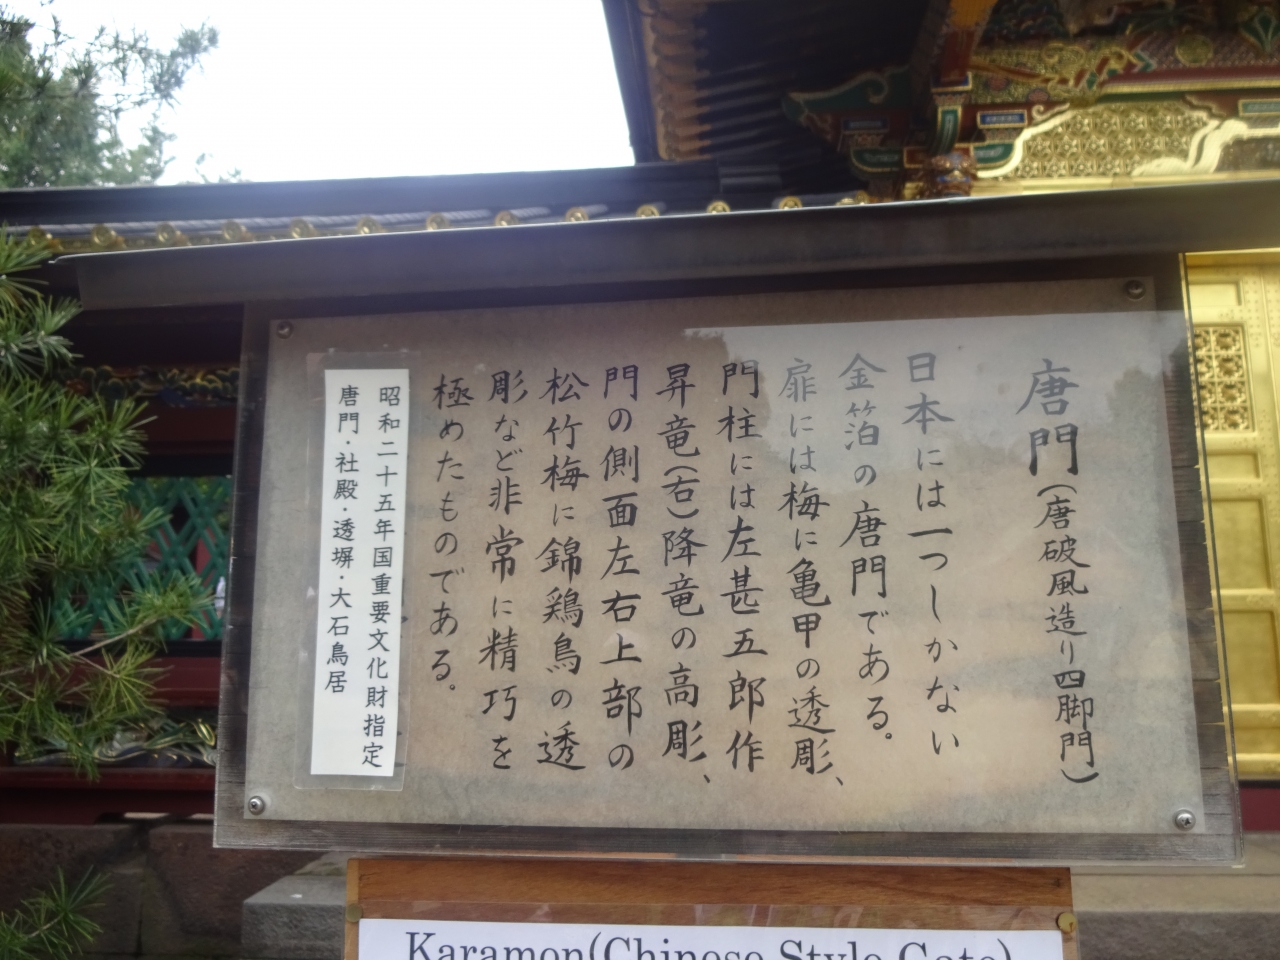 唐門(唐破風造り四脚門)
日本には一つしかない
金箔の唐門である。
扉には梅に亀甲の透彫、
門柱には左甚五郎作
昇竜(右)降竜の高彫、
門の側面左右上部の
松竹梅に錦鶏鳥の透
彫など非常に精巧を
極めたものである。
昭和二十五年国重要文化財指定
唐門・社殿・透塀・大石鳥居
Karamon(Chinese Style Gate)